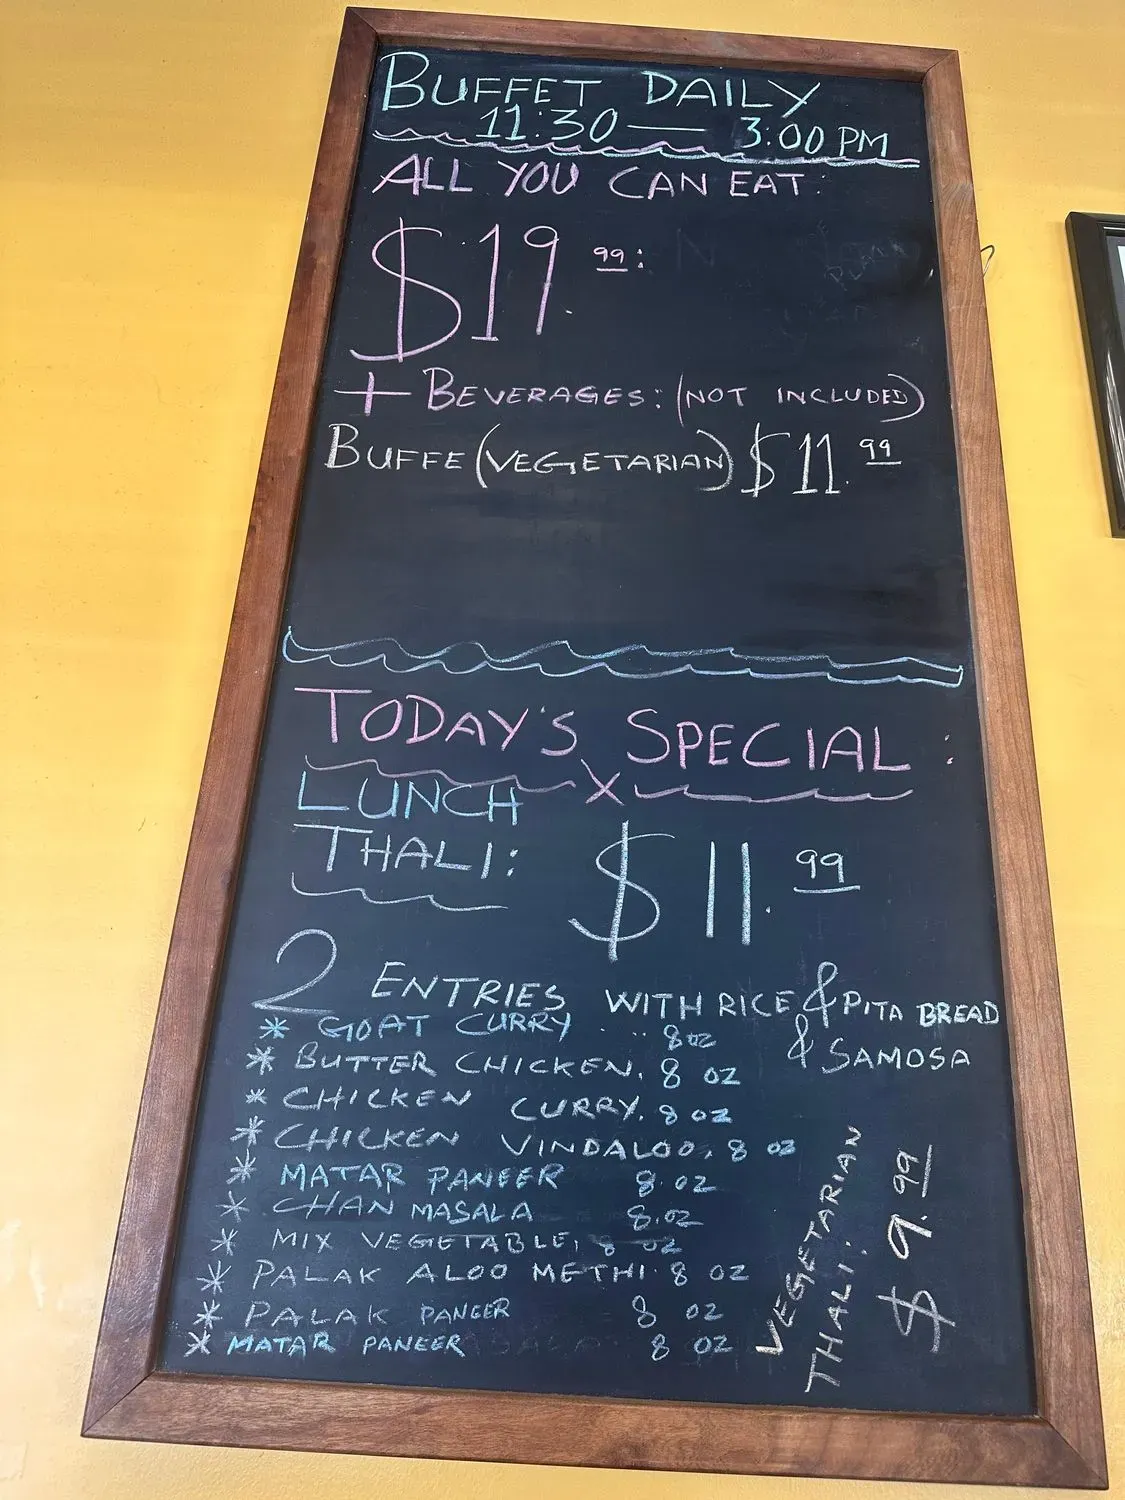 BUFFET DAILY
11:30 — 3:00 PM
ALL YOU CAN EAT:
$19.99:
+ BEVERAGES: (NOT INCLUDED)
BUFFE (VEGETARIAN) $11.99
TODAY'S SPECIAL:
LUNCH
THALI: $11.99
2 ENTRIES WITH RICE & PITA BREAD
& SAMOSA
* GOAT CURRY 8 oz
* BUTTER CHICKEN. 8 oz
* CHICKEN CURRY. 8 oz
* CHICKEN VINDALOO, 8 oz
* MATAR PANEER 8.oz
* CHAN MASALA 8.oz
* MIX VEGETABLE, 8 oz
* PALAK ALOO METHI. 8 oz
* PALAK PANEER 8 oz
* MATAR PANEER 8 oz
VEGETARIAN
THALI:
$9.99